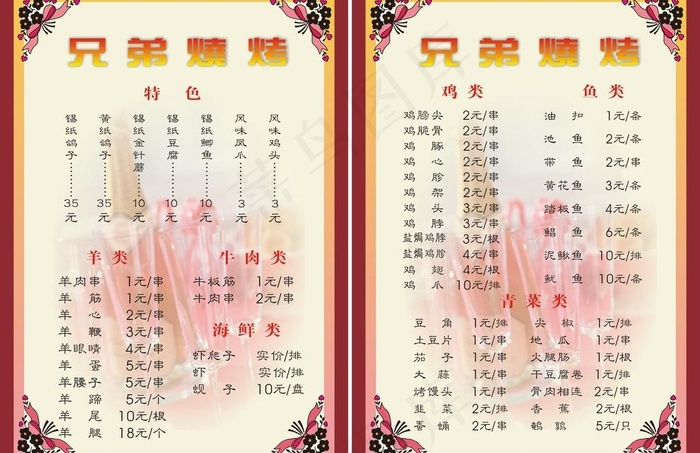 兄弟燒烤
特色
锡纸鸽子……35元
黄纸鸽子……35元
锡纸金针蘑……10元
锡纸豆腐……10元
锡纸鲫鱼……10元
风味凤爪……3元
风味鸡头……3元
羊类
羊肉串 1元/串
羊筋 1元/串
羊心 2元/串
羊鞭 3元/串
羊眼晴 4元/串
羊蛋 5元/串
羊腰子 5元/串
羊蹄 5元/个
羊尾 10元/根
羊腿 18元/个
牛肉类
牛板筋 1元/串
牛肉串 2元/串
海鲜类
虾爬子 实价/排
虾 实价/排
蚬子 10元/盘
兄弟燒烤
鸡类
鸡膀尖 2元/串
鸡脆骨 2元/串
鸡豚 2元/串
鸡心 2元/串
鸡胗 2元/串
鸡架 2元/串
鸡头 3元/串
鸡脖 3元/串
盐焗鸡脖 3元/根
盐焗鸡胗 3元/串
鸡翅 4元/根
鸡爪 3元/串
鱼类
油扣 1元/条
池鱼 2元/条
带鱼 2元/串
黄花鱼 3元/条
踏板鱼 4元/条
鲳鱼 6元/条
泥鳅鱼 10元/排
鱿鱼 10元/条
青菜类
豆角 1元/排
土豆片 1元/串
茄子 1元/根
大蒜 1元/排
烤馒头 2元/串
韭菜 2元/排
蚕蛹 2元/串
尖椒 1元/排
地瓜 1元/串
火腿肠 1元/根
干豆腐卷 1元/排
骨肉相连 2元/串
香蕉 2元/根
鹌鹑 5元/只